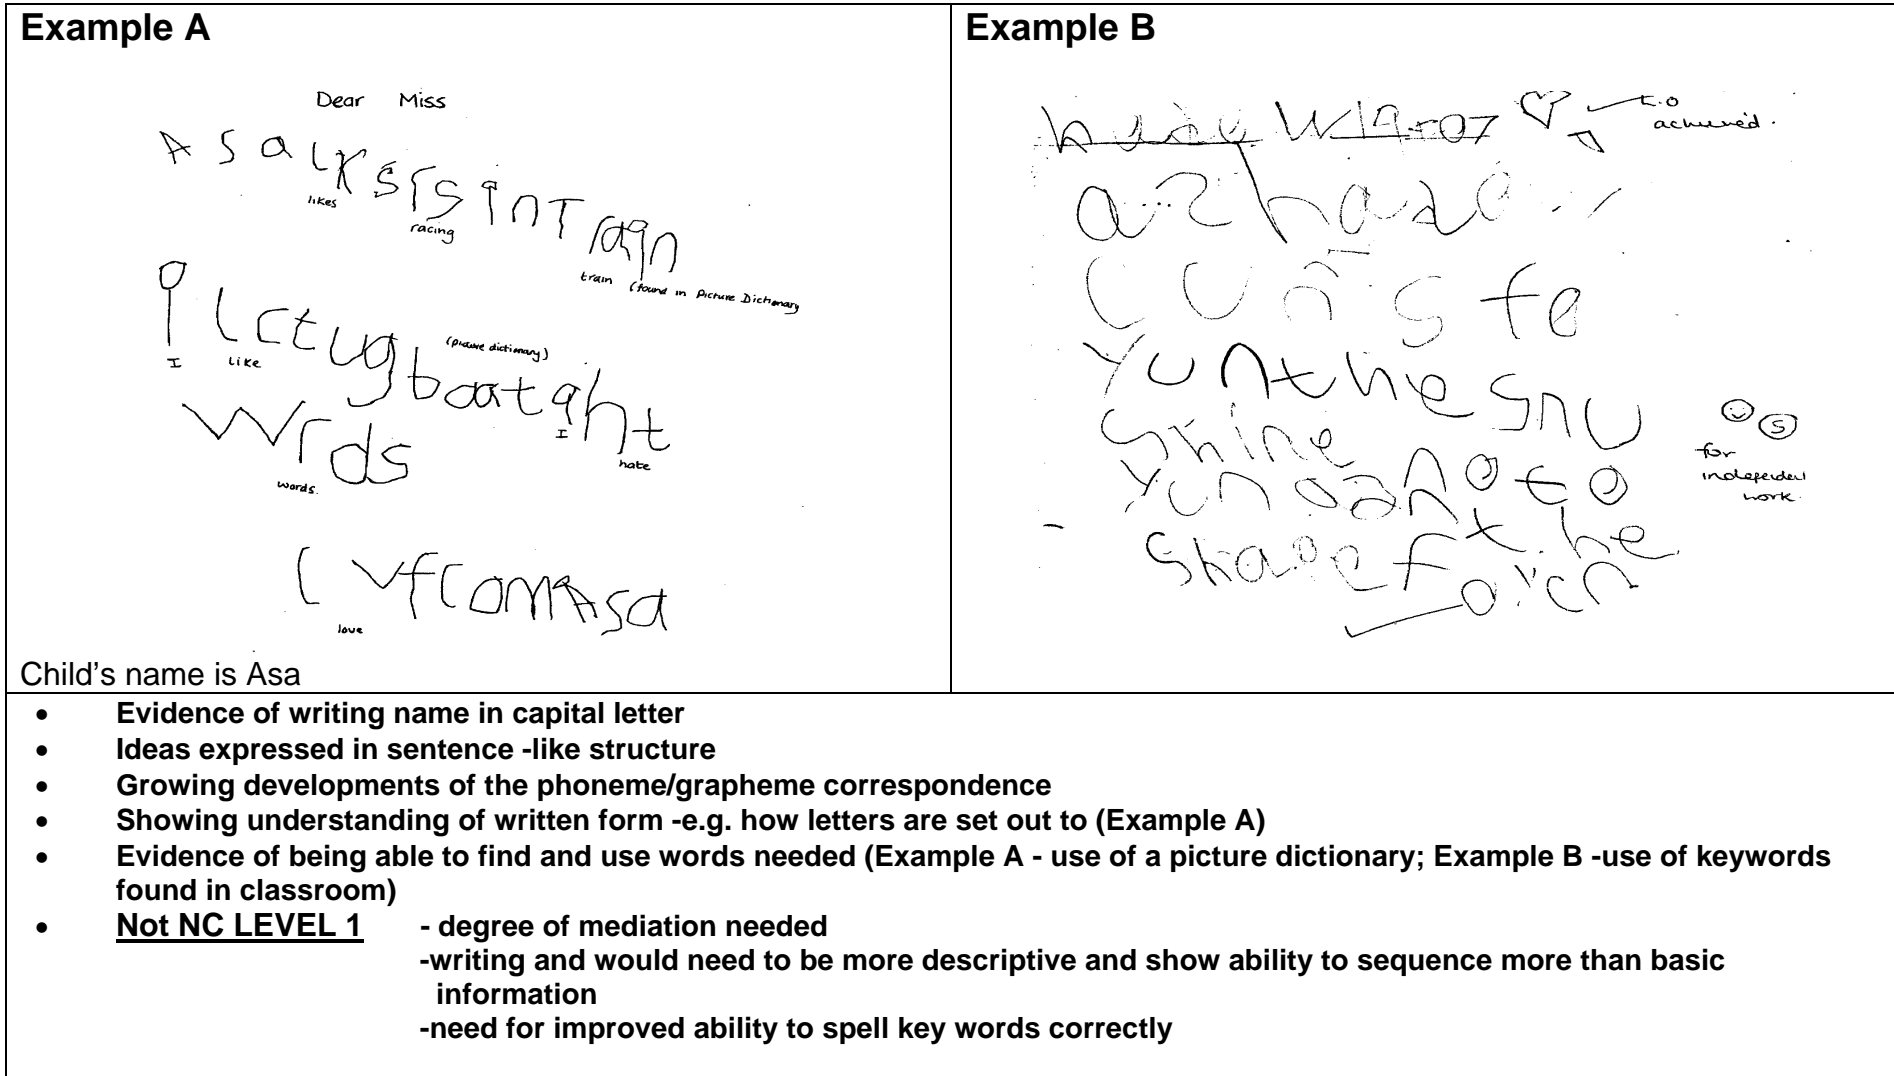 Example A
Dear Miss
AsalKsrsinTrain
likes
racing
train (found in Picture Dictionary
ilctugboatiht
(picture dictionary)
I
like
I
hate
wrds
words.
lvfromAsa
love
Child's name is Asa
Example B
L.O
achieved.
Yunthe snu
shine
for
independent
work.
• Evidence of writing name in capital letter
• Ideas expressed in sentence -like structure
• Growing developments of the phoneme/grapheme correspondence
• Showing understanding of written form -e.g. how letters are set out to (Example A)
• Evidence of being able to find and use words needed (Example A - use of a picture dictionary; Example B -use of keywords
found in classroom)
• Not NC LEVEL 1 - degree of mediation needed
-writing and would need to be more descriptive and show ability to sequence more than basic
information
-need for improved ability to spell key words correctly